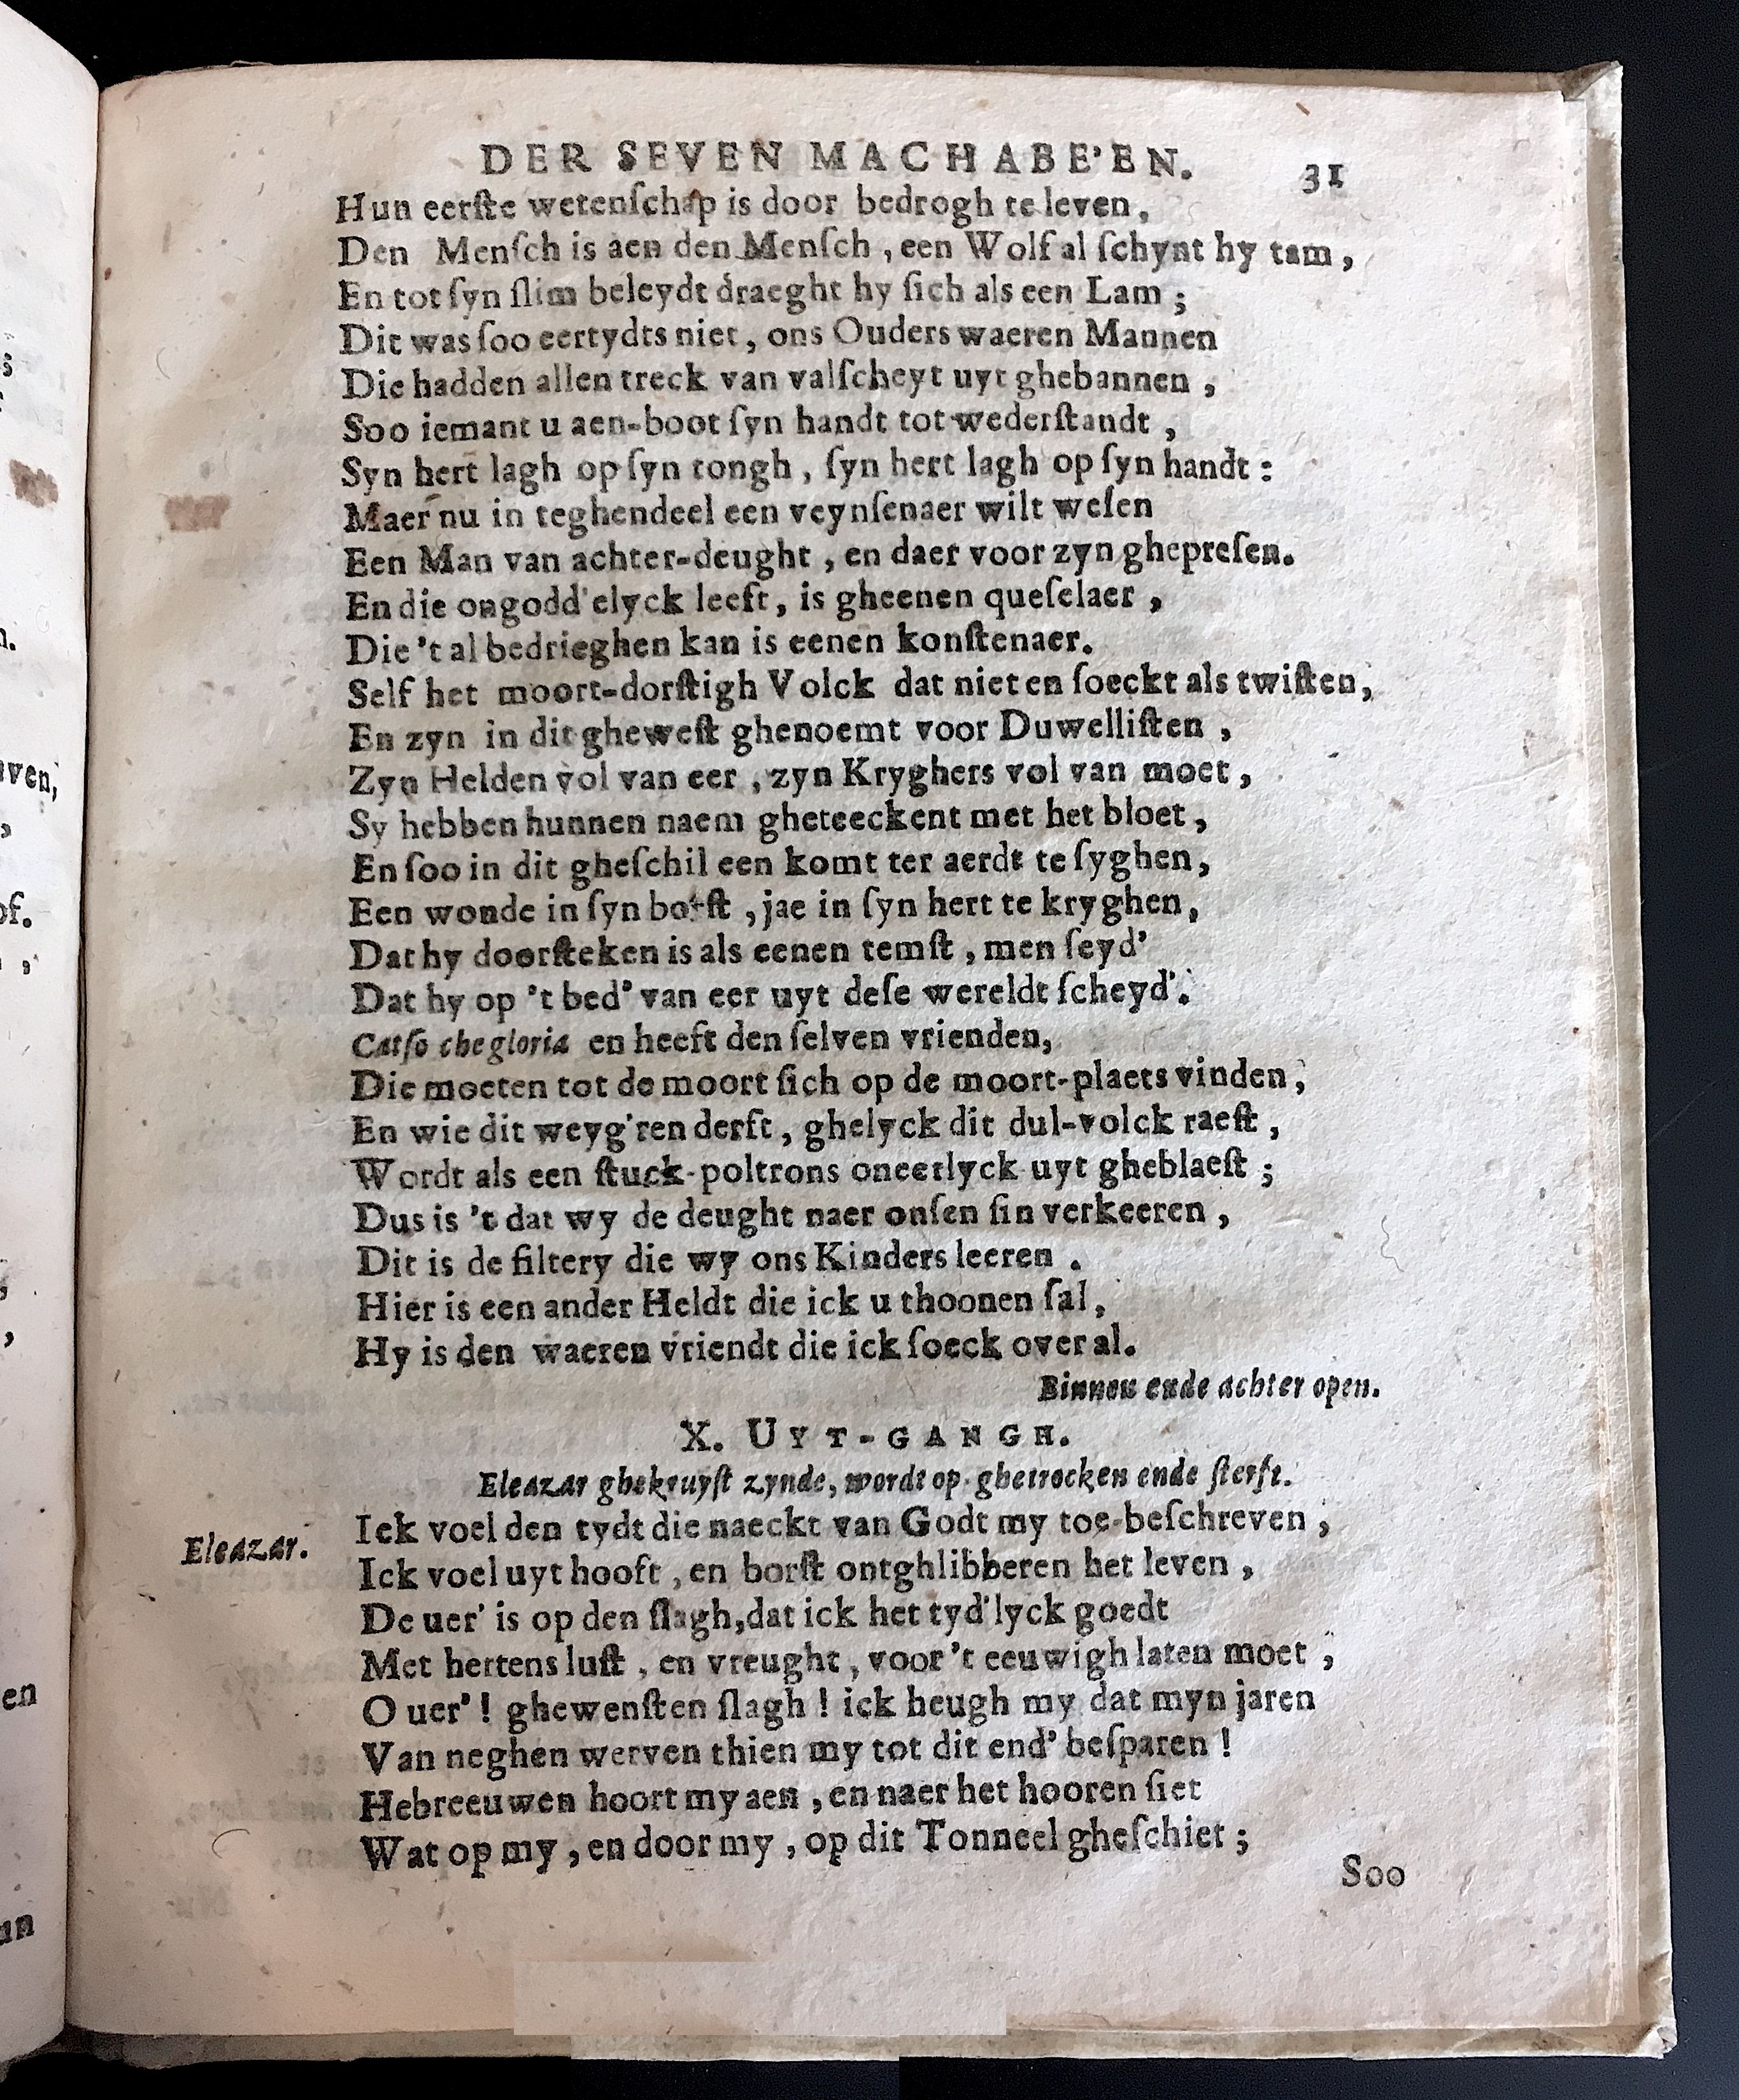 DER SEVEN MACHABE'EN. 31
Hun eerſte wetenſchap is door bedrogh te leven,
Den Menſch is aen den Menſch, een Wolf al ſchynt hy tam,
En tot ſyn ſlim beleydt draeght hy ſich als een Lam;
Dit was ſoo eertydts niet, ons Ouders waeren Mannen
Die hadden allen treck van valſcheyt uyt ghebannen,
Soo iemant u aen-boot ſyn handt tot wederſtandt,
Syn hert lagh op ſyn tongh, ſyn hert lagh op ſyn handt:
Maer nu in teghendeel een veynſenaer wilt weſen
Een Man van achter-deught, en daer voor zyn ghepreſen.
En die ongodd'elyck leeft, is gheenen queſelaer,
Die 't al bedrieghen kan is eenen konſtenaer.
Self het moort-dorſtigh Volck dat niet en ſoeckt als twiſten,
En zyn in dit gheweſt ghenoemt voor Duwelliſten,
Zyn Helden vol van eer, zyn Kryghers vol van moet,
Sy hebben hunnen naem gheteeckent met het bloet,
En ſoo in dit gheſchil een komt ter aerdt te ſyghen,
Een wonde in ſyn borſt, jae in ſyn hert te kryghen,
Dat hy doorſteken is als eenen temſt, men ſeyd'
Dat hy op 't bed' van eer uyt deſe wereldt ſcheyd'.
Catſo che gloria en heeft den ſelven vrienden,
Die moeten tot de moort ſich op de moort-plaets vinden,
En wie dit weyg'ren derft, ghelyck dit dul-volck raeſt,
Wordt als een ſtuck-poltrons oneerlyck uyt gheblaeſt;
Dus is 't dat wy de deught naer onſen ſin verkeeren,
Dit is de filtery die wy ons Kinders leeren.
Hier is een ander Heldt die ick u thoonen ſal,
Hy is den waeren vriendt die ick ſoeck over al.
Binnen ende achter open.
X. UYT-GANGH.
Eleazar ghekruyſt zynde, wordt op-ghetrocken ende ſterft.
Eleazar. Iek voel den tydt die naeckt van Godt my toe-beſchreven,
Ick voel uyt hooft, en borſt ontghlibberen het leven,
De uer' is op den ſlagh, dat ick het tyd'lyck goedt
Met hertens luſt, en vreught, voor 't eeuwigh laten moet;
O uer'! ghewenſten ſlagh! ick heugh my dat myn jaren
Van neghen werven thien my tot dit end' beſparen!
Hebreeuwen hoort my aen, en naer het hooren ſiet
Wat op my, en door my, op dit Tonneel gheſchiet;
Soo